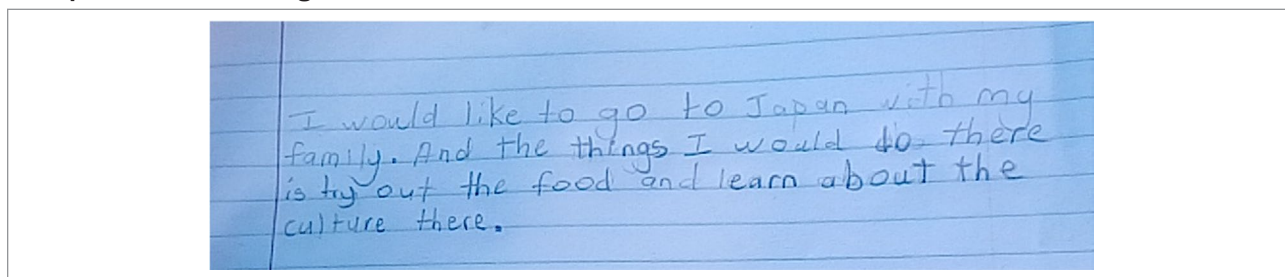 I would like to go to Japan with my
family. And the things I would do there
is try out the food and learn about the
culture there.